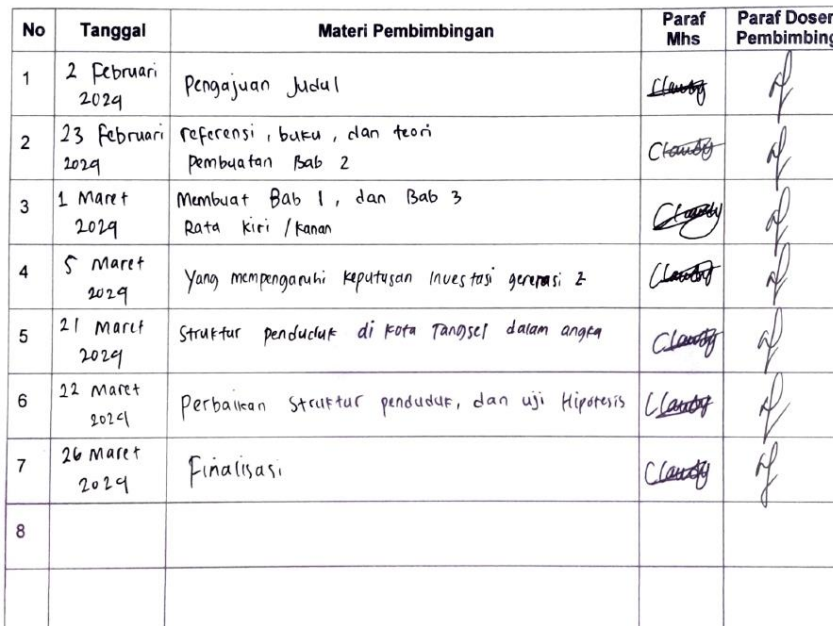 No Tanggal Materi Pembimbingan Paraf Mhs Paraf Dosen Pembimbing
1 2 Februari 2024 Pengajuan Judul Claudy
2 23 Februari 2024 referensi, buku, dan teori
Pembuatan Bab 2 Claudy
3 1 Maret 2024 Membuat Bab 1, dan Bab 3
Rata kiri / kanan Claudy
4 5 Maret 2024 Yang mempengaruhi keputusan Investasi generasi Z Claudy
5 21 Maret 2024 Struktur penduduk di kota Tangsel dalam angka Claudy
6 22 Maret 2024 Perbaikan Struktur penduduk, dan uji Hipotesis Claudy
7 26 Maret 2024 Finalisasi Claudy
8